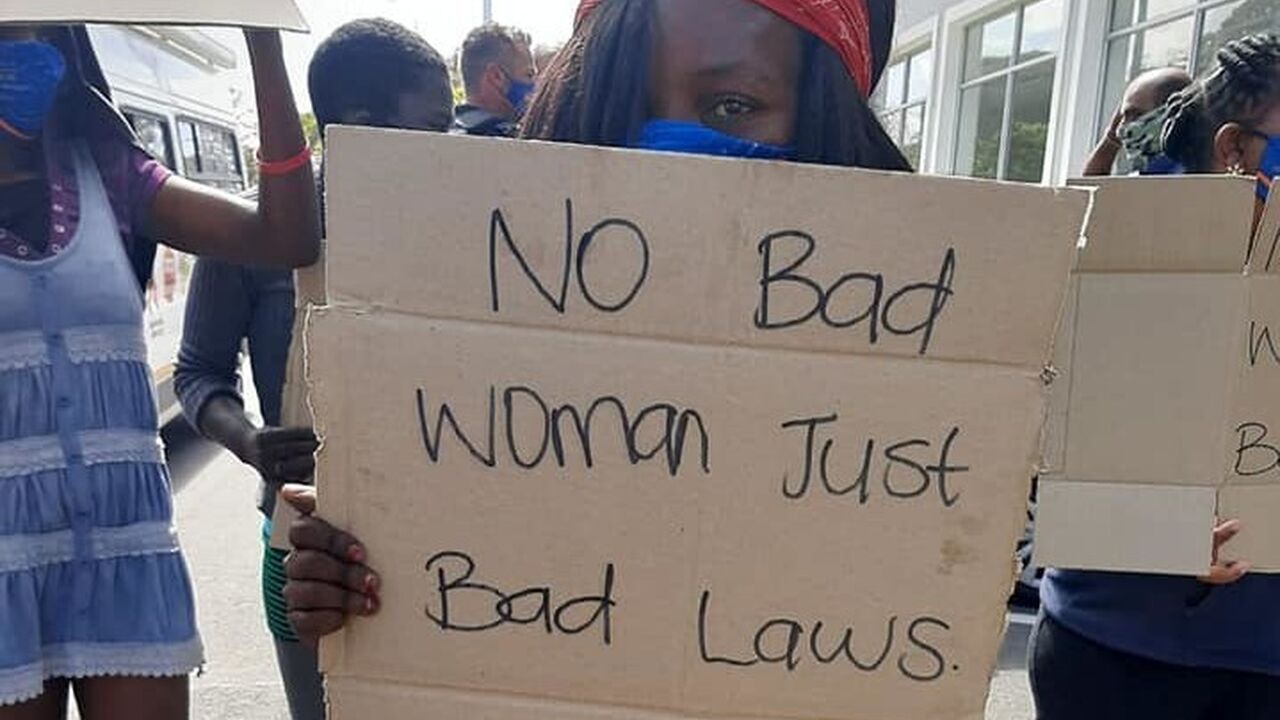 NO Bad
Woman Just
Bad Laws.